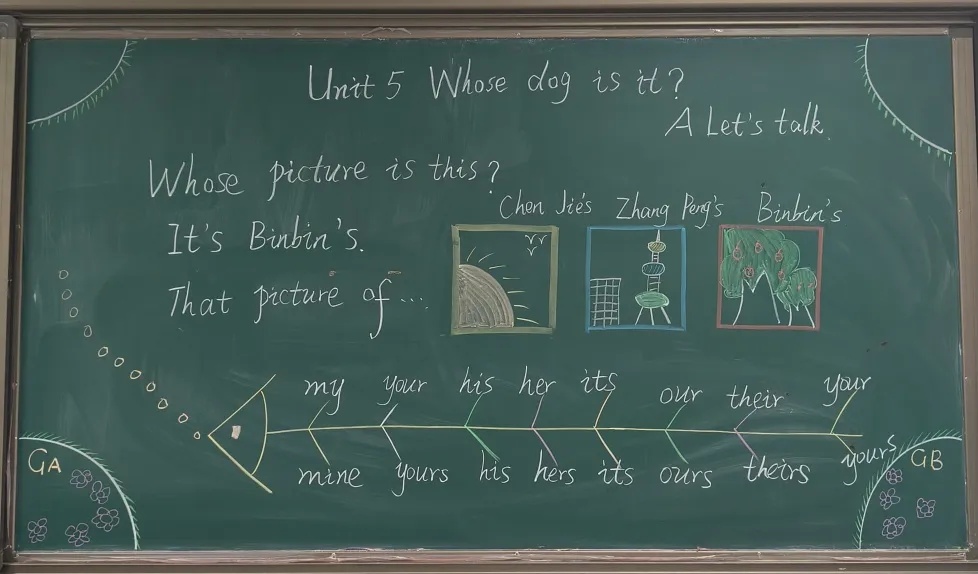 Unit 5 Whose dog is it?
A Let's talk.
Whose picture is this?
It's Binbin's.
That picture of ...
Chen Jie's Zhang Peng's Binbin's
my your his her its our their your
mine yours his hers its ours theirs yours
GA
GB